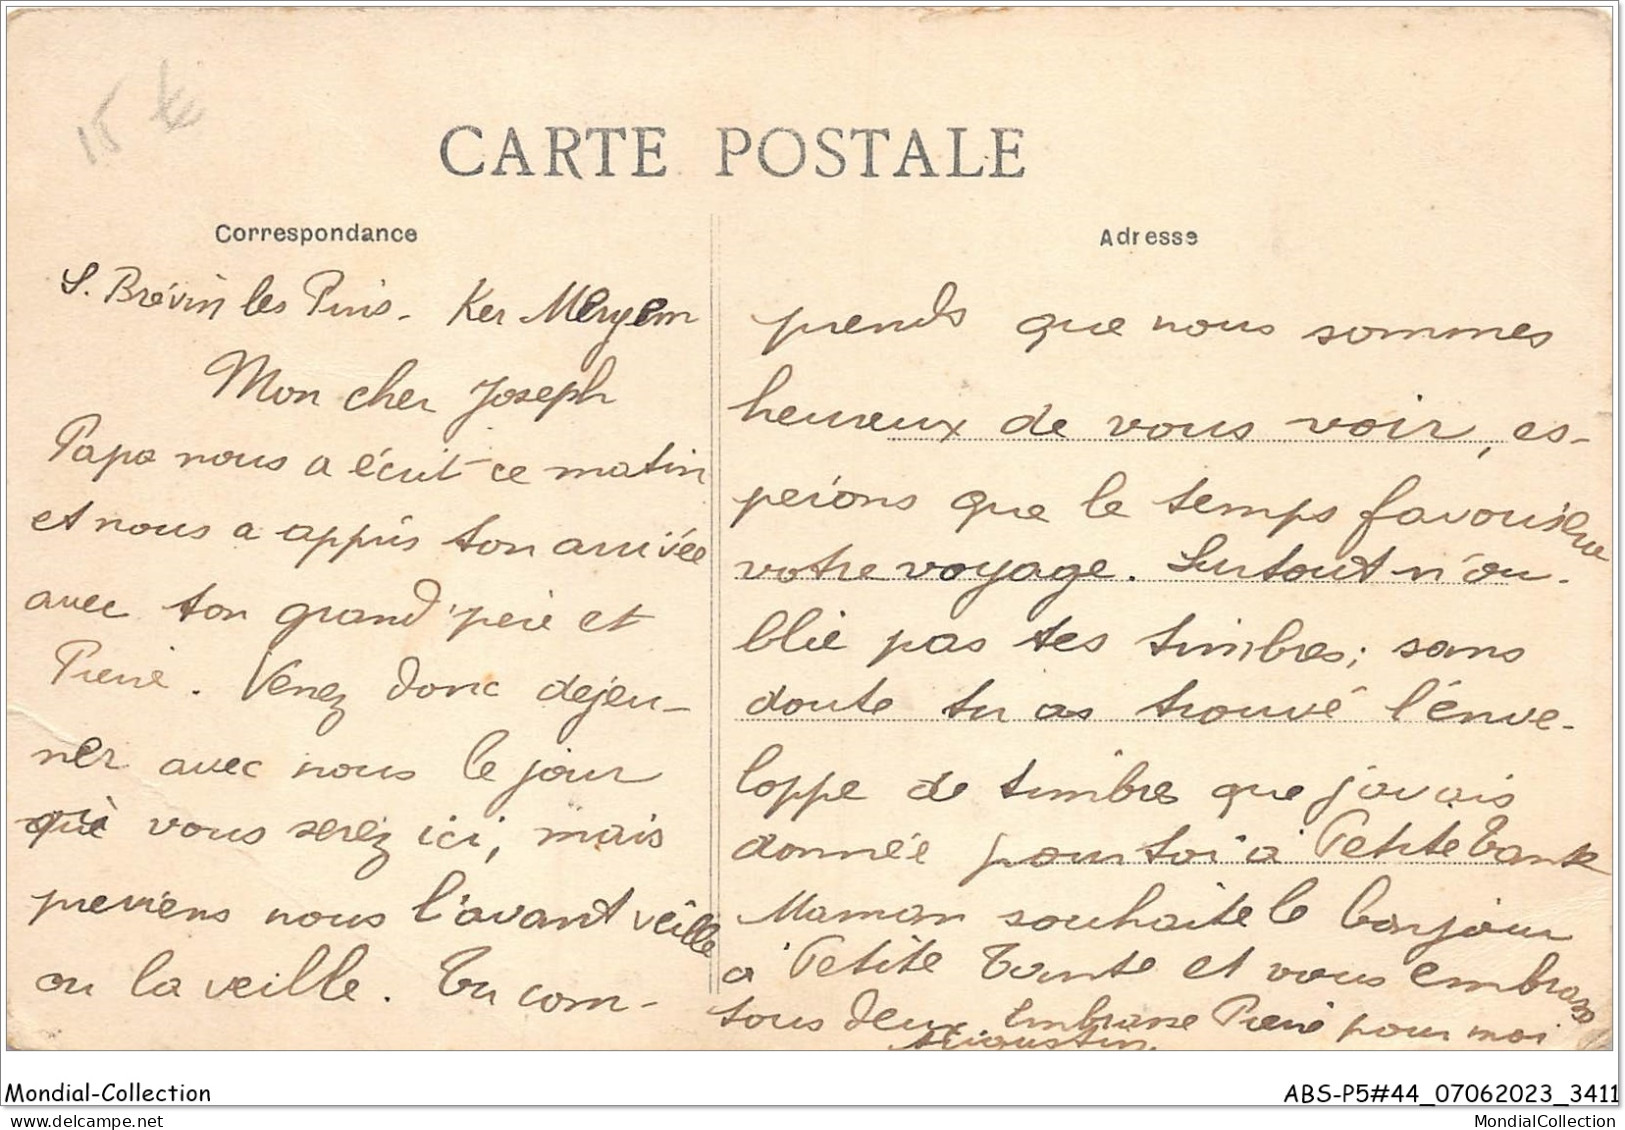 15 €
CARTE POSTALE
Correspondance
S. Brévin les Pins - Ker Meryem
Mon cher Joseph
Papa nous a écrit ce matin
et nous a appris ton arrivée
avec ton grand'père et
Pierre. Venez donc dejeu-
ner avec nous le jour
que vous serez ici, mais
previens nous l'avant veille
ou la veille. Tu com-
Adresse
prends que nous sommes
heureux de vous voir, es-
perons que le temps favorisera
votre voyage. Surtout n'ou-
blie pas tes timbres; sans
doute tu as trouvé l'énve-
loppe de timbres que j'avais
donnée pour toi à Petite Tante
Maman souhaite le bonjour
à Petite Tante et vous embrasse
tous deux. Embrasse Pierre pour moi
Augustin.
Mondial-Collection
ABS-P5#44_07062023_3411
MondialCollection